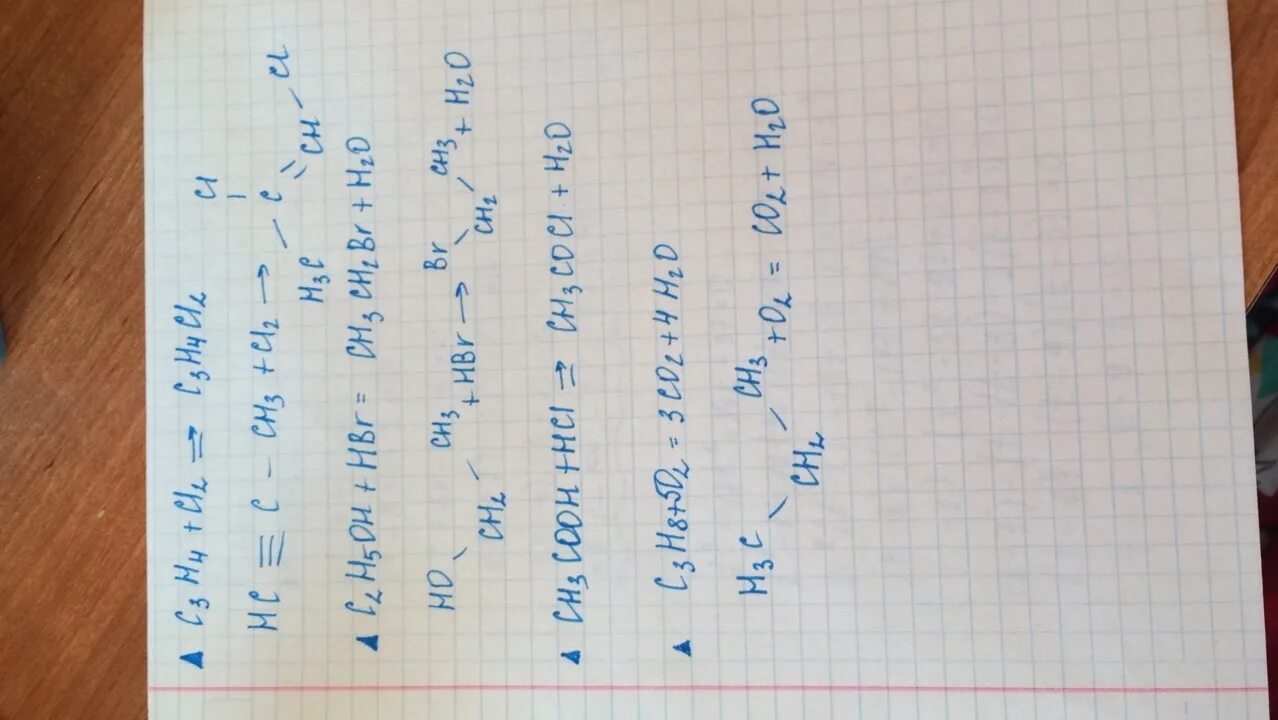 C3H4 + Cl2 ⇒ C3H4Cl2
Cl
HC ≡ C - CH3 + Cl2 → H3C - C = CH - Cl
C2H5OH + HBr = CH3CH2Br + H2O
HO - CH2 - CH3 + HBr → Br - CH2 - CH3 + H2O
CH3COOH + HCl ⇒ CH3COCl + H2O
C3H8 + 5O2 = 3CO2 + 4H2O
H3C - CH2 - CH3 + O2 = CO2 + H2O